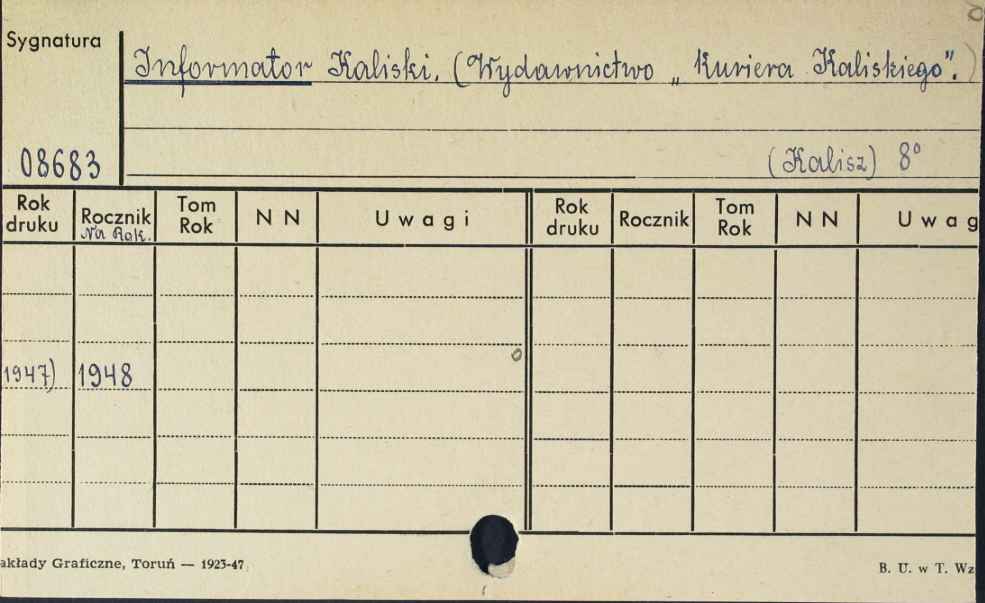 Sygnatura
Informator Kaliski. (Wydawnictwo „Kuriera Kaliskiego".)
08683
(Kalisz) 8°
Rok druku Rocznik Tom Rok N N Uwagi Rok druku Rocznik Tom Rok N N Uwag
Na Rok.
1947) 1948
akłady Graficzne, Toruń — 1923-47 B. U. w T. Wz